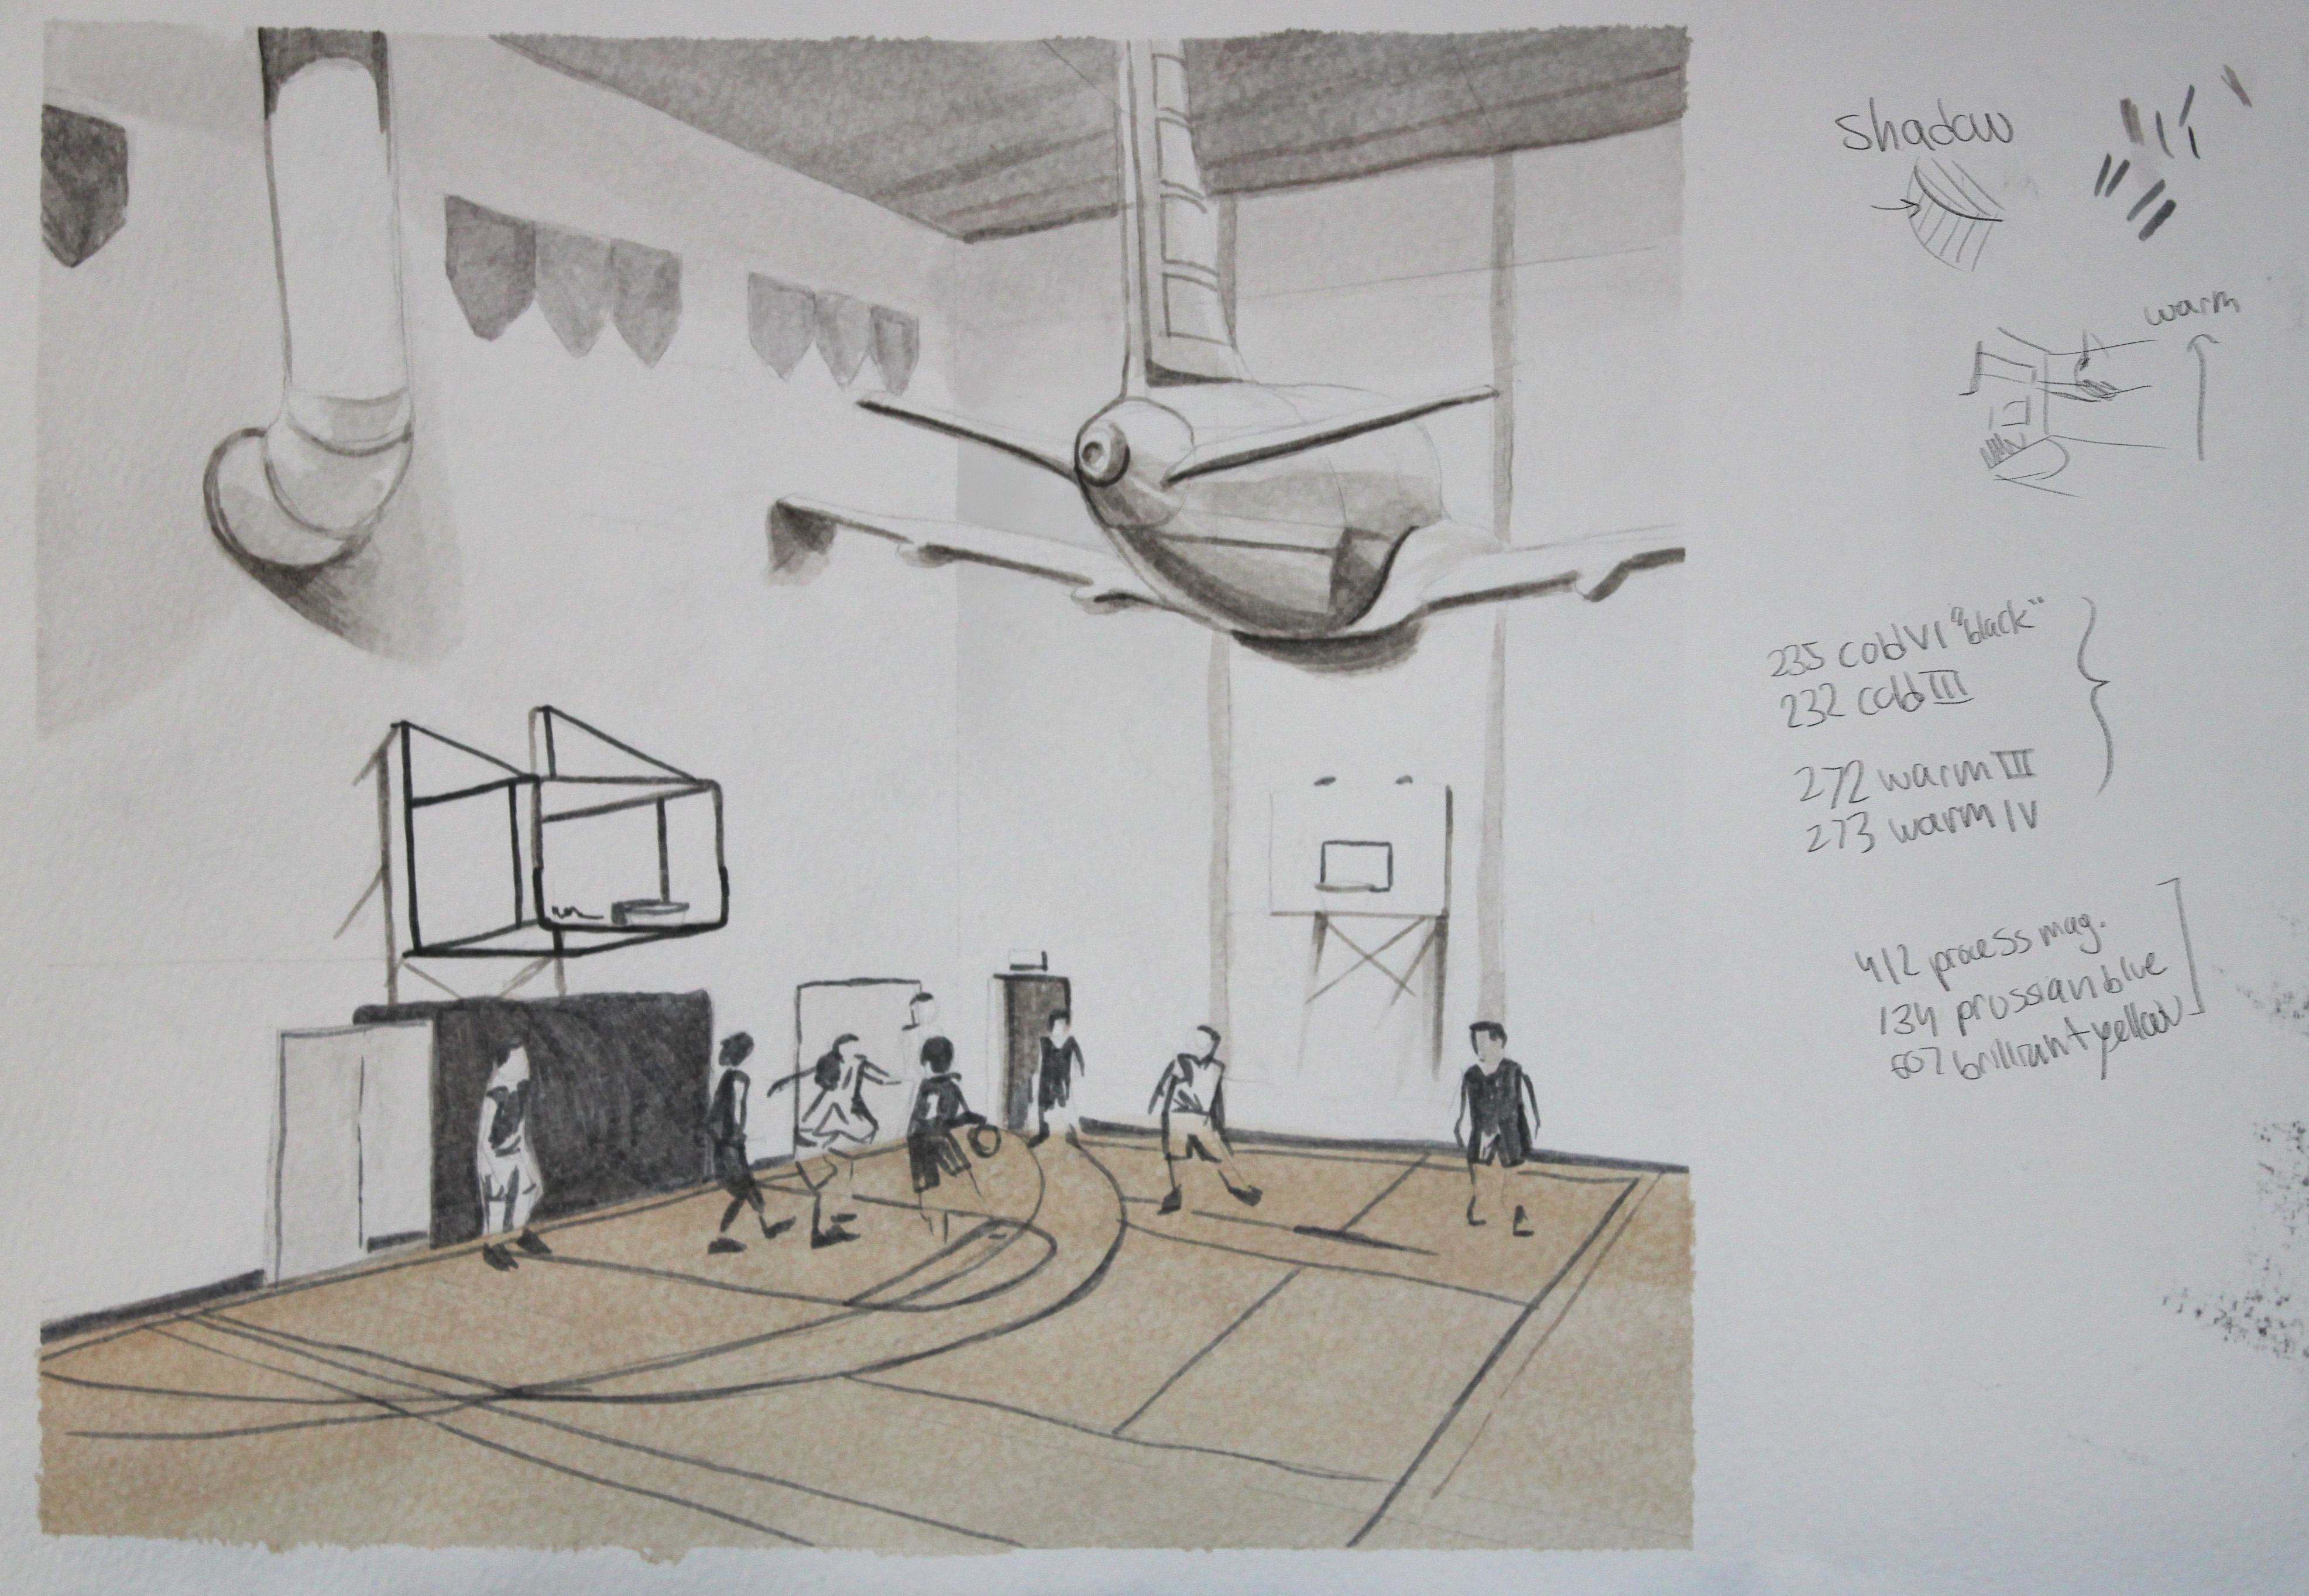 shadow
warm
235 cold VI "black"
232 cold III
272 warm III
273 warm IV
412 process mag.
134 prussian blue
507 brilliant yellow